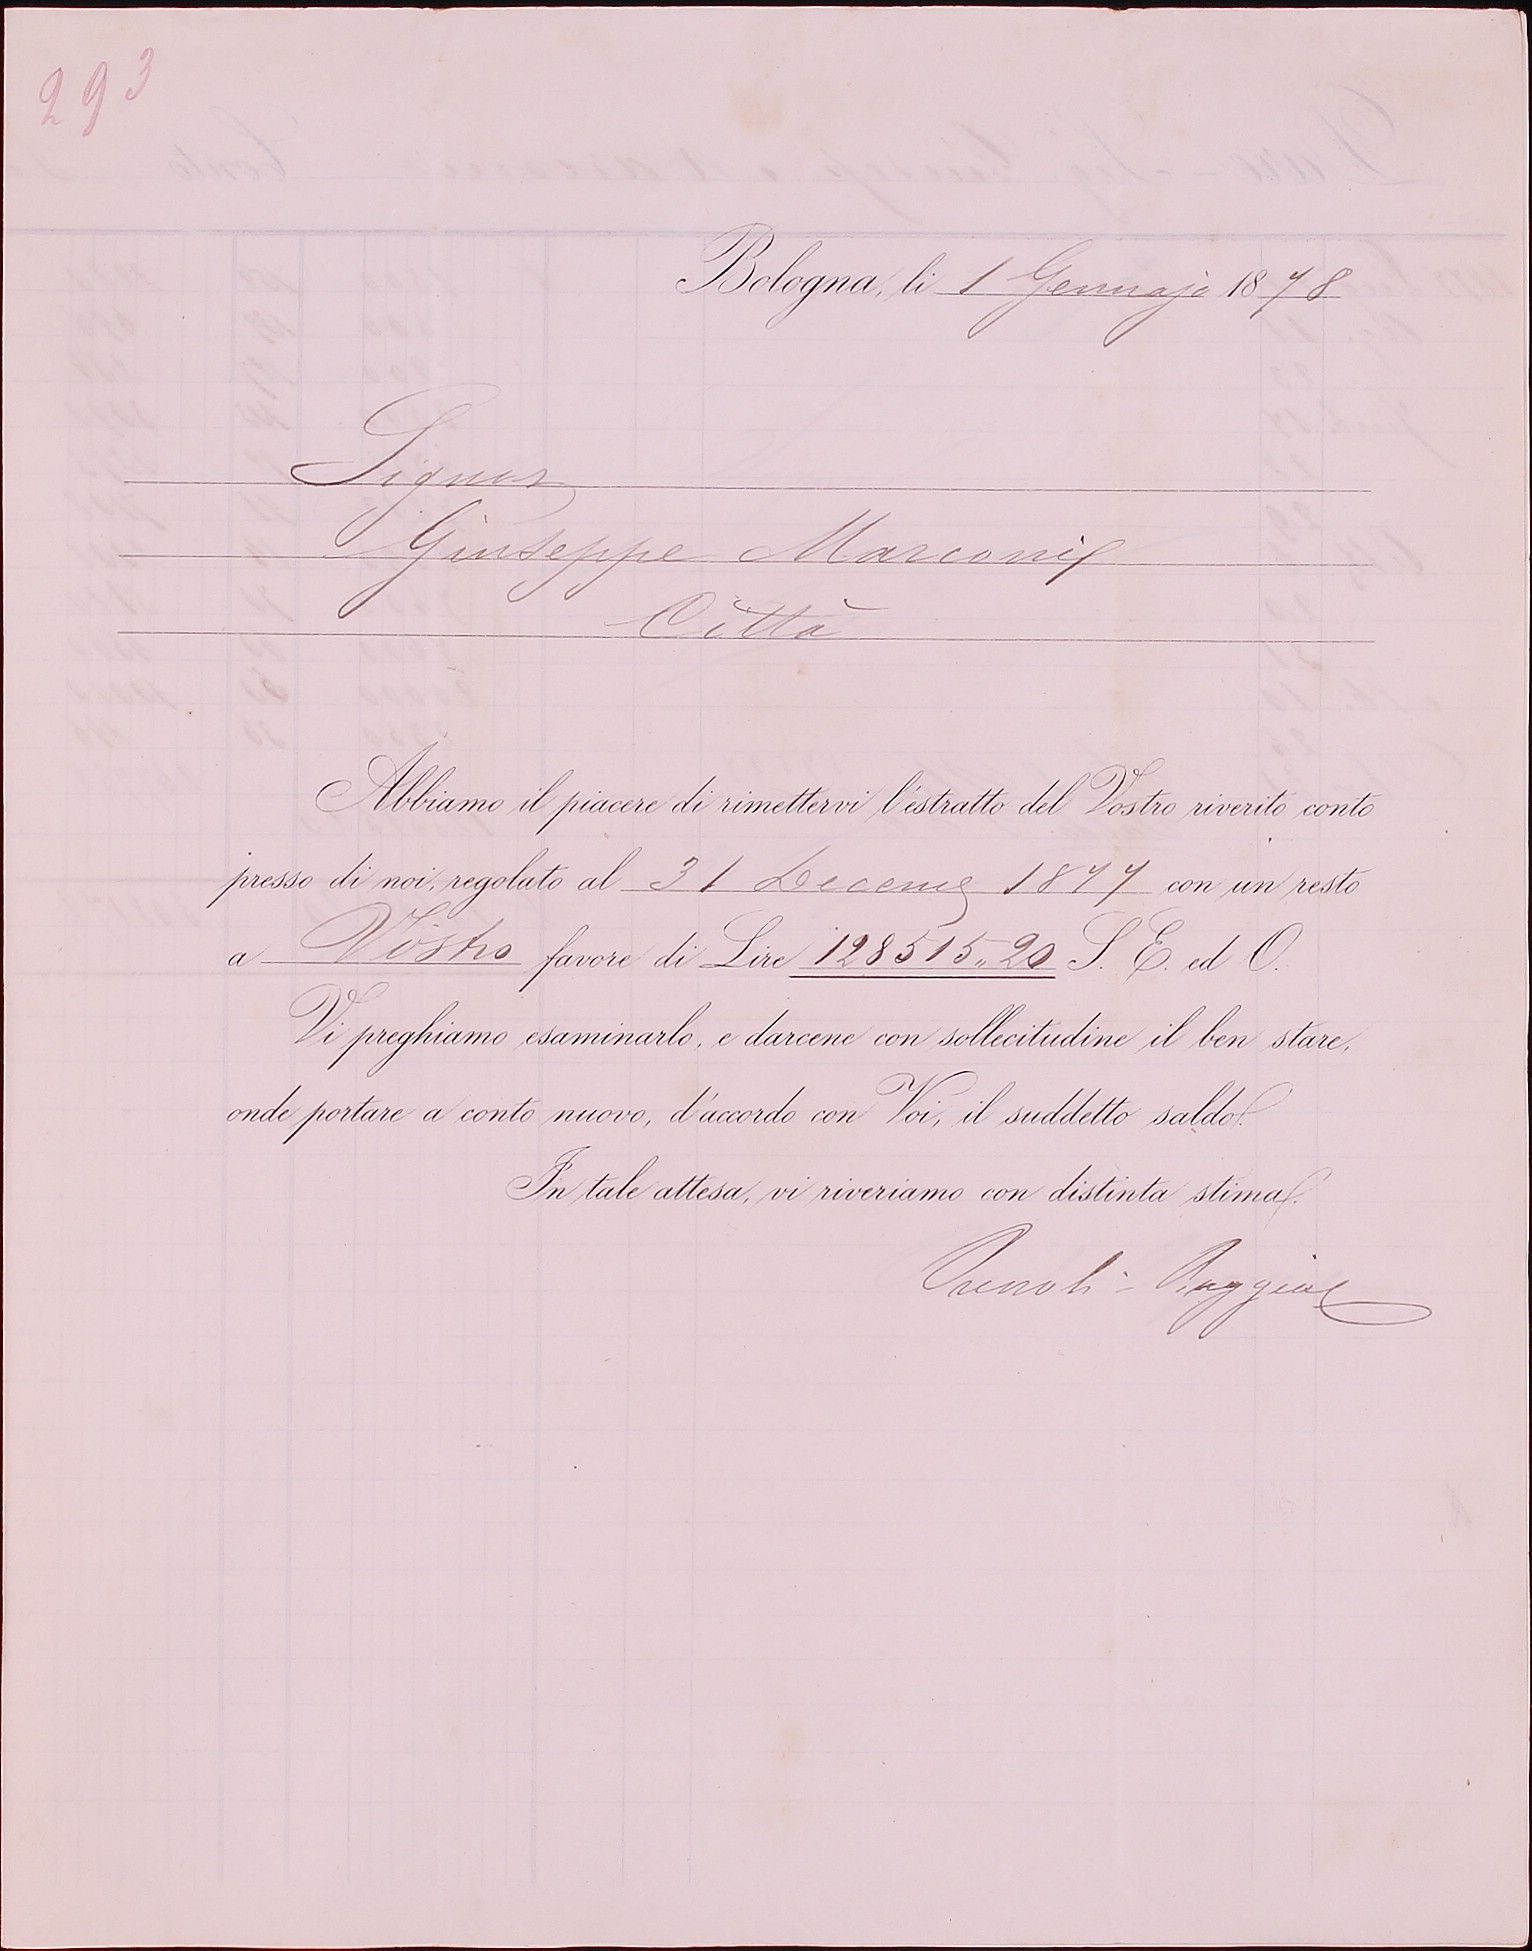 293
Bologna, li 1 Gennajo 1878
Signor
Giuseppe Marconi
Città
Abbiamo il piacere di rimettervi l'estratto del Vostro riverito conto
presso di noi, regolato al 31 Decem 1877 con un resto
a Vostro favore di Lire 128515,,20 S. E. ed O.
Vi preghiamo esaminarlo, e darcene con sollecitudine il ben stare,
onde portare a conto nuovo, d'accordo con Voi, il suddetto saldo.
In tale attesa, vi riveriamo con distinta stima.